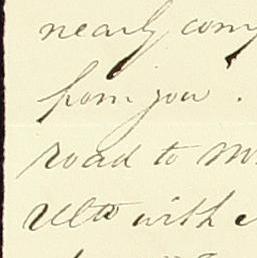 nearly com
from you.
road to M
with